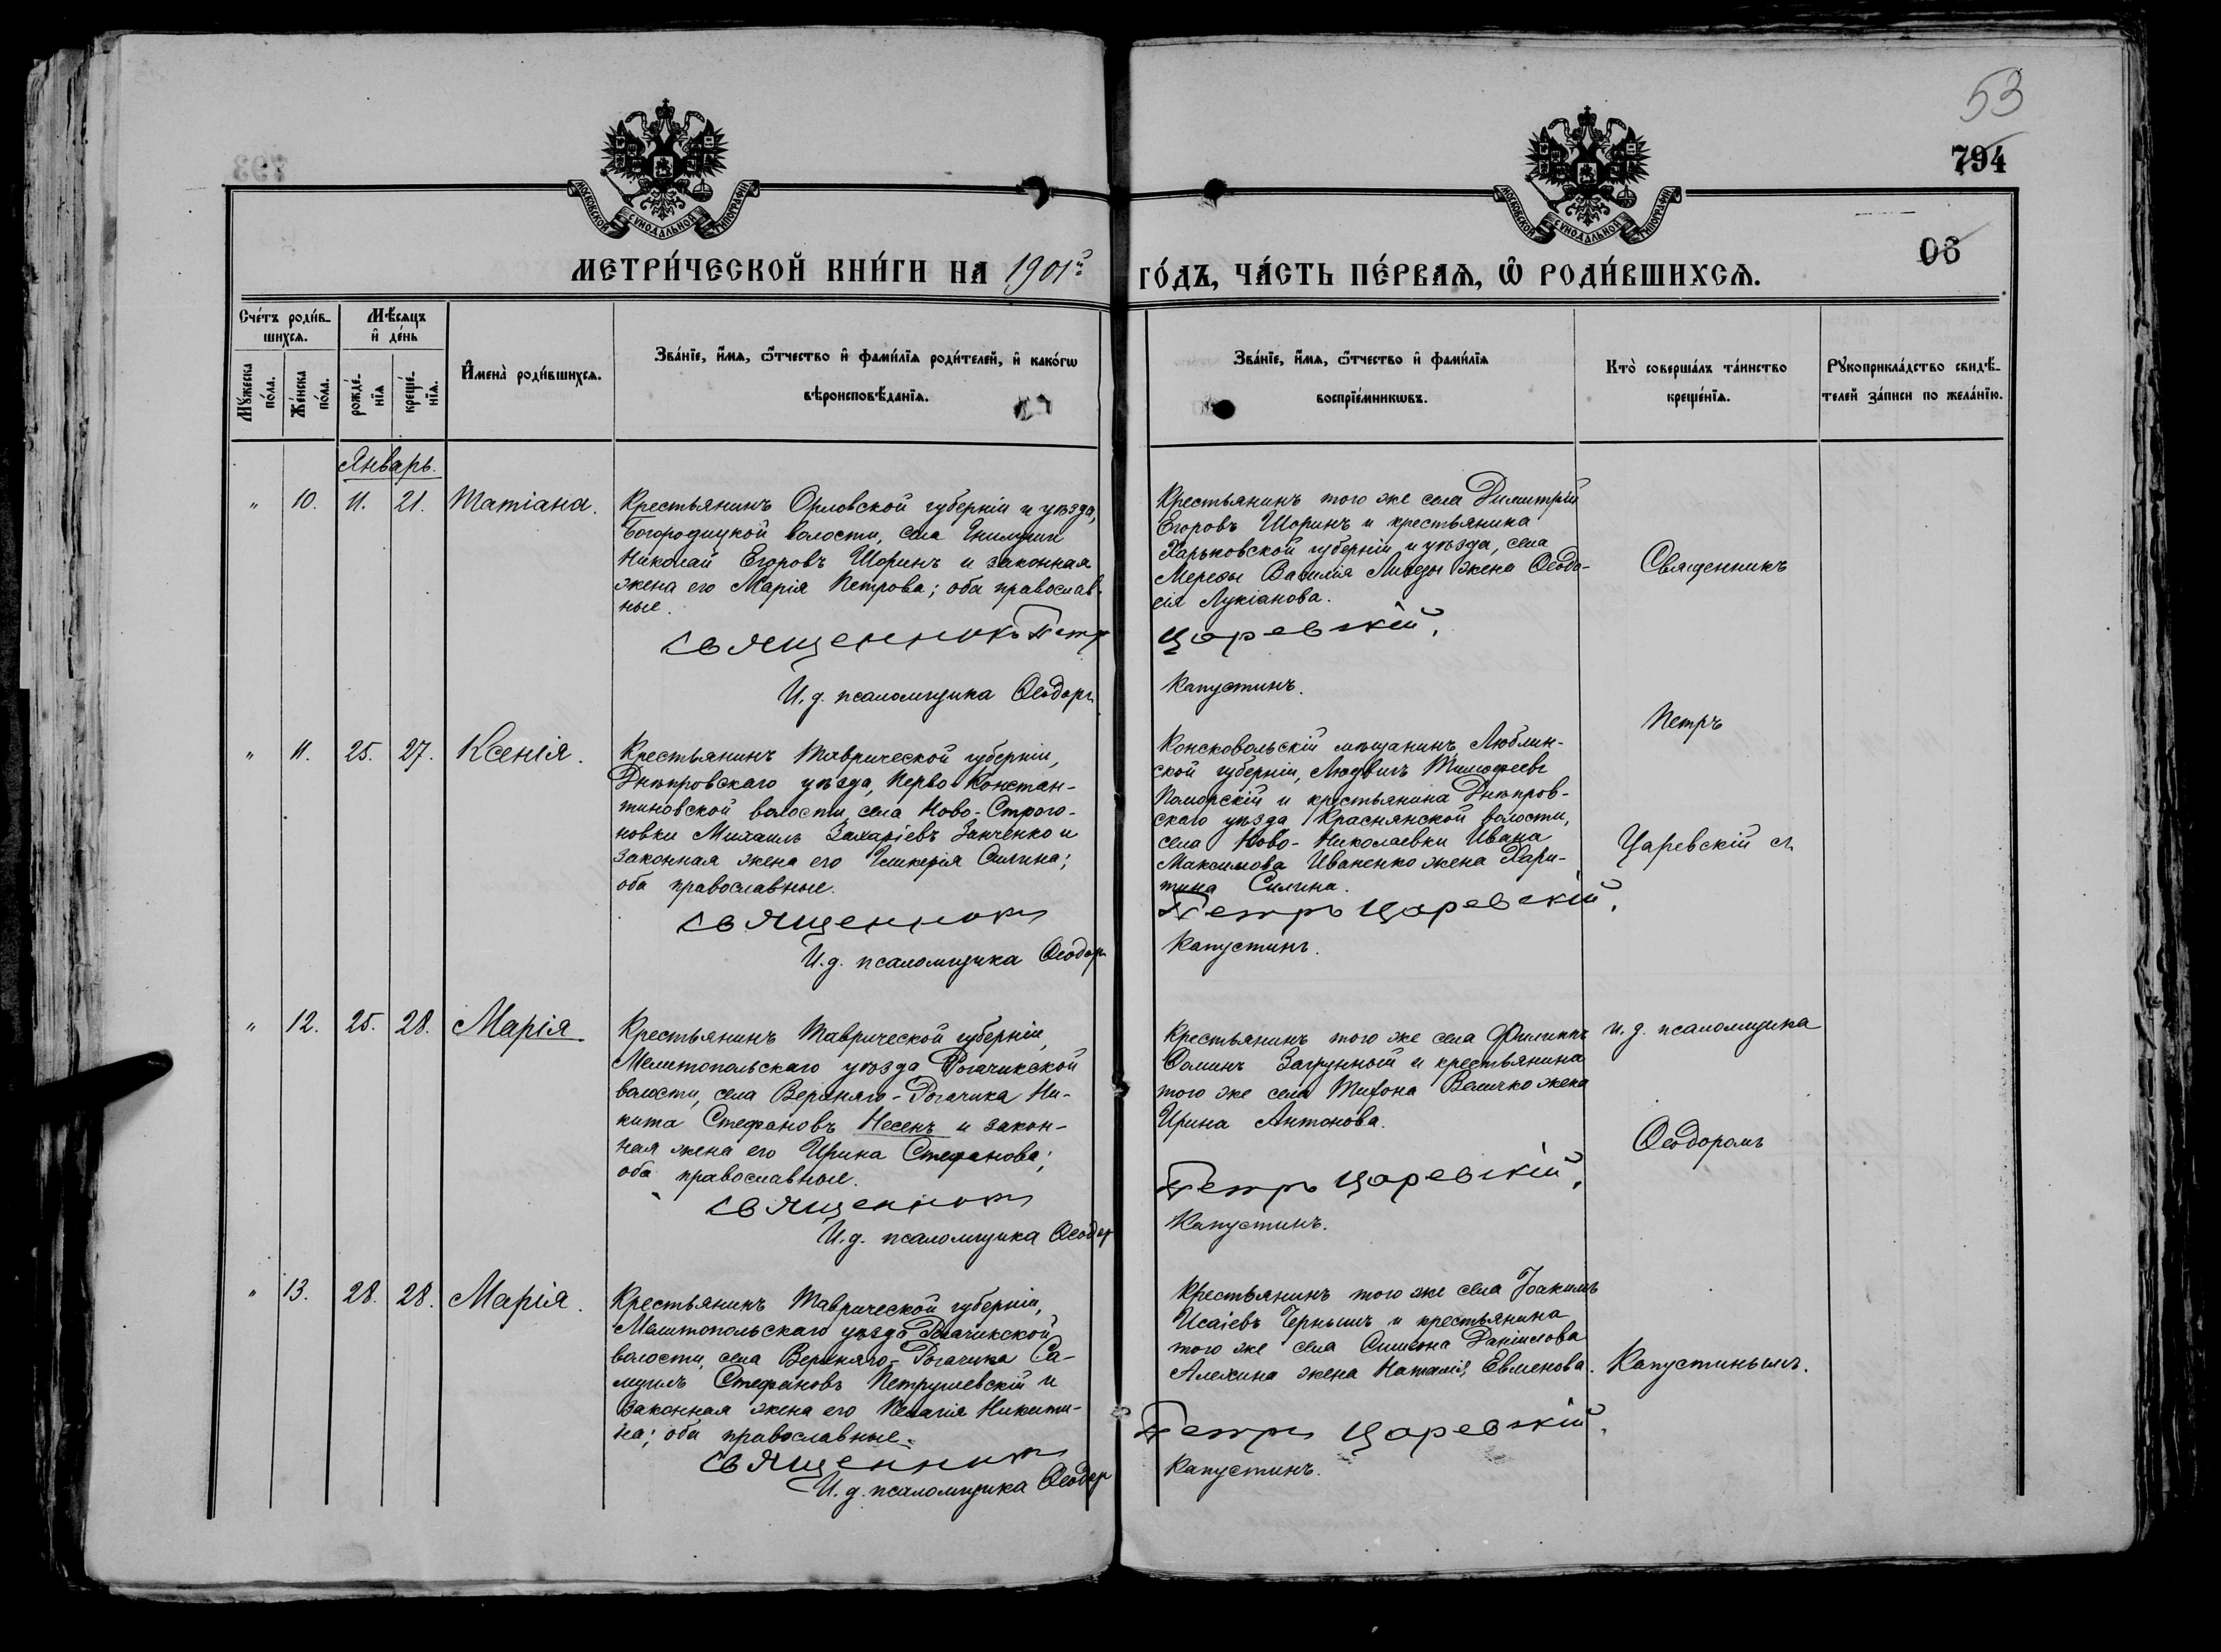 53
794
793
МОСКОВСКОЙ СѴНОДАЛЬНОЙ ТИПОГРАФІИ
МОСКОВСКОЙ СѴНОДАЛЬНОЙ ТИПОГРАФІИ
06
МЕТРИ́ЧЕСКОЙ КНИ́ГИ НА 1901й
ГО́ДЪ, ЧА́СТЬ ПЕ́РВАѦ, Ѡ҆ РОДИ́ВШИХСѦ.
Сче́тъ роди́в-
шихсѧ.
Мꙋ́жеска по́ла.
Же́нска по́ла.
Мѣ́сѧцъ
и҆ де́нь
рожде́-нїѧ
креще́-нїѧ.
И҆мена̀ роди́вшихсѧ.
Зва́нїе, и҆́мѧ, ѻ҆́тчество и҆ фами́лїѧ роди́телей, и҆ како́гѡ
вѣроисповѣ́данїѧ.
Зва́нїе, и҆́мѧ, ѻ҆́тчество и҆ фами́лїѧ
воспрїе́мникѡвъ.
Кто̀ соверша́лъ та́инство
креще́нїѧ.
Рꙋкоприкла́дство свидѣ́-
телей за́писи по жела́нїю.
Январь.
" 10. 11. 21. Татіана.
Крестьянинъ Орловской губерніи и уѣзда,
Богородицкой волости, села Гнилуши
Николай Егоровъ Шоринъ и законная
жена его Марія Петрова; оба православ-
ные.
Священникъ Петръ
И. д. псаломщика Ѳеодоръ
Крестьянинъ того же села Димитрій
Егоровъ Шоринъ и крестьянина
Харьковской губерніи и уѣзда, села
Мерефы Василія жена Ѳеодо-
сія Лукіанова.
Царевскій.
Капустинъ.
" 11. 25. 27. Ксенія.
Крестьянинъ Таврической губерніи,
Днѣпровскаго уѣзда, Перво-Констан-
тиновской волости, села Ново-Строго-
новки Михаилъ Захаріевъ Занченко и
законная жена его Гликерія Силина;
оба православные.
Священникъ
И. д. псаломщика Ѳеодоръ
Консковольскій мѣщанинъ, Люблин-
ской губерніи, Людвигъ Тимофеевъ
Поморскій и крестьянина Днѣпров-
скаго уѣзда Краснянской волости,
села Ново-Николаевки Ивана
Максимова Иваненко жена Хари-
тина Силина.
Петръ Царевскій.
Капустинъ.
" 12. 25. 28. Марія
Крестьянинъ Таврической губерніи,
Мелитопольскаго уѣзда Рогачикской
волости, села Верхняго-Рогачика Ни-
кита Стефановъ Несенъ и закон-
ная жена его Ирина Стефанова;
оба православные.
Священникъ
И. д. псаломщика Ѳеодоръ
Крестьянинъ того же села Филиппъ
Ѳоминъ Загрунный и крестьянина
того же села Тихона Величко жена
Ирина Антонова.
Петръ Царевскій.
Капустинъ.
" 13. 28. 28. Марія.
Крестьянинъ Таврической губерніи,
Мелитопольскаго уѣзда Рогачикской
волости, села Верхняго-Рогачика Са-
муилъ Стефановъ Петрушевскій и
законная жена его Пелагія Никити-
на; оба православные.
Священникъ
И. д. псаломщика Ѳеодоръ
Крестьянинъ того же села Іоакимъ
Исаіевъ Чернышъ и крестьянина
того же села Симеона Даніилова
Алехина жена Наталія Евменова.
Петръ Царевскій.
Капустинъ.
Священникъ
Петръ
Царевскій съ
и. д. псаломщика
Ѳеодоромъ
Капустинымъ.